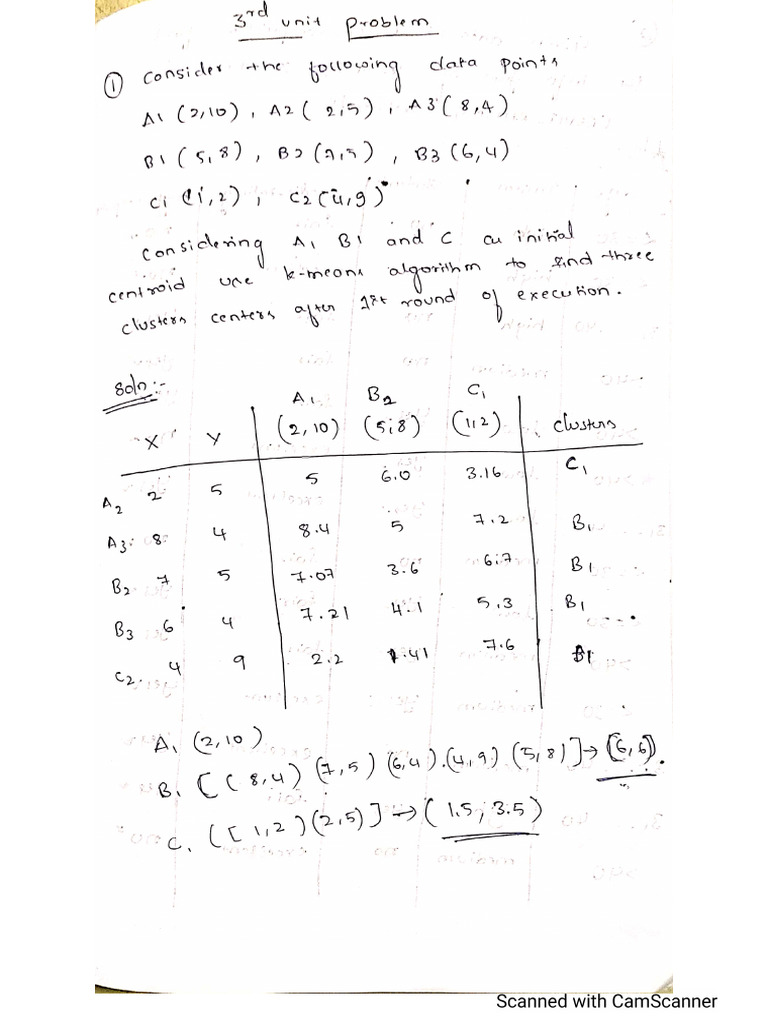 3rd unit problem
① Consider the following data points
A1 (2,10), A2 (2,5), A3 (8,4)
B1 (5,8), B2 (7,5), B3 (6,4)
C1 (1,2), C2 (4,9)
Considering A1 B1 and C as initial
centroid use k-means algorithm to find three
clusters centers after 1st round of execution.
Soln:-
A1 B2 C1
X Y (2,10) (5,8) (1,2) clusters
A2 2 5 5 6.0 3.16 C1
A3. 8 4 8.4 5 7.2 B1
B2 7 5 7.07 3.6 6.7 B1
B3 6 4 7.21 4.1 5.3 B1
C2. 4 9 2.2 1.41 7.6 B1
A1 (2,10)
B1 [(8,4) (7,5) (6,4).(4,9) (5,8)] → (6,6).
C1 ([1,2) (2,5)] → (1.5, 3.5)
Scanned with CamScanner